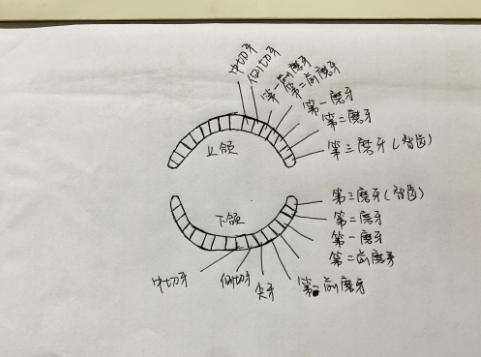 中切牙
侧切牙
第一前磨牙
第二前磨牙
第一磨牙
第二磨牙
第三磨牙(智齿)
上颌
第三磨牙(智齿)
第二磨牙
第一磨牙
第二前磨牙
第一前磨牙
尖牙
侧切牙
中切牙
下颌